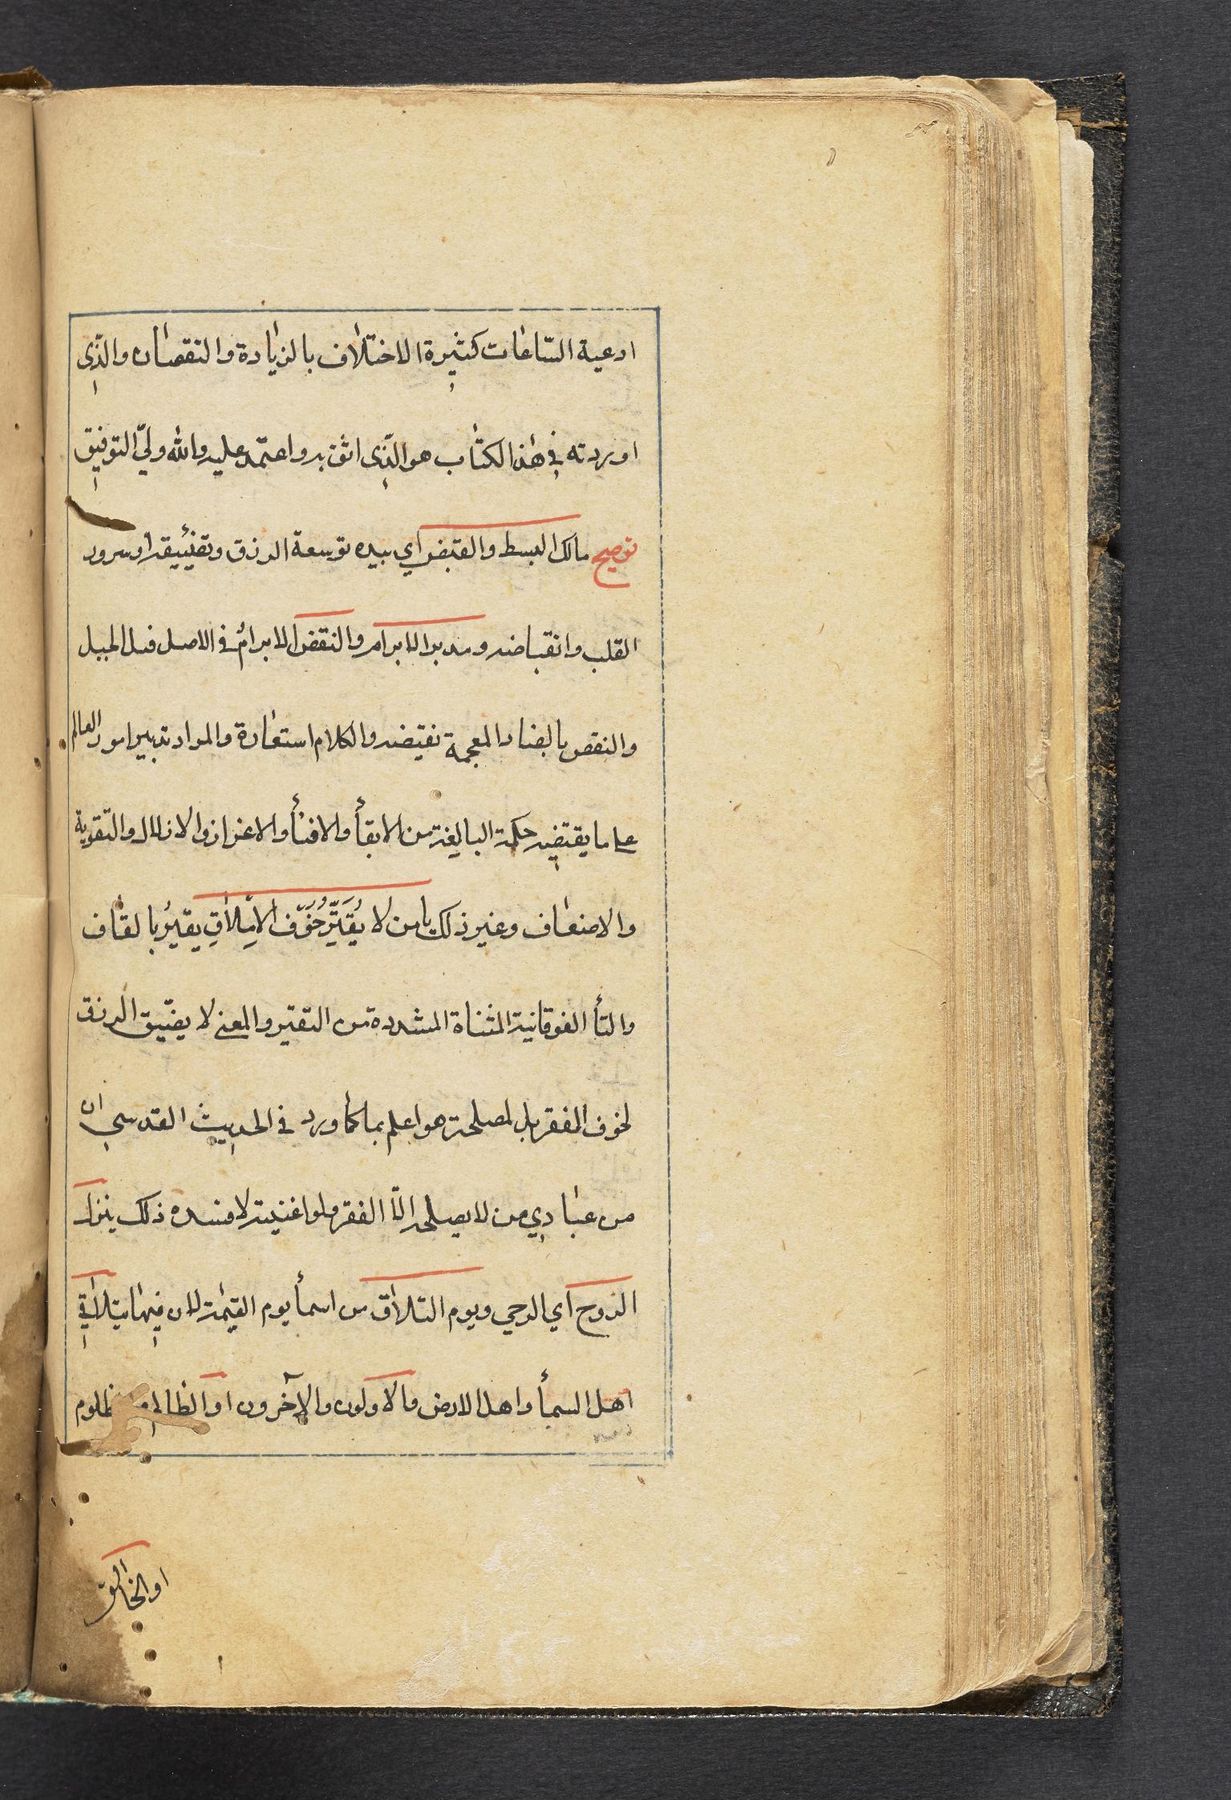 ادعية الساعات كثيرة الاختلاف بالزيادة والنقصان والذي
اوردته في هذا الكتاب هو الذي اثق به واعتمد عليه والله ولي التوفيق
توضيح مالك البسط والقبض اي بيده توسعة الرزق وتضييقه او سرور
القلب وانقباضه ومدبر الابرام والنقض الابرام في الاصل فتل الحبل
والنقض بالضاد المعجمة نقيضه والكلام استعارة والمراد تدبير امور العالم
على ما يقتضيه حكمته البالغة من الابقأ والافنأ والاعزاز والاذلال والتقوية
والاضعاف وغير ذلك يا من لا يُقَتِّر خَوْف الاِملاٰقِ يقتر بالقاف
والتأ الفوقانية المثناة المشددة من التقتير والمعنى لا يضيق الرزق
لخوف الفقر بل لمصلحة هو اعلم بها كما ورد في الحديث القدسي ان
من عبادي من لا يصلحه الّا الفقر ولو اغنيته لافسده ذلك ينزل
الروح اي الوحي ويوم التلاق من اسمأ يوم القيمة لان فيها يتلاقى
اهل السمأ واهل الارض والاولون والآخرون او الظالم والمظلوم
او الخالق